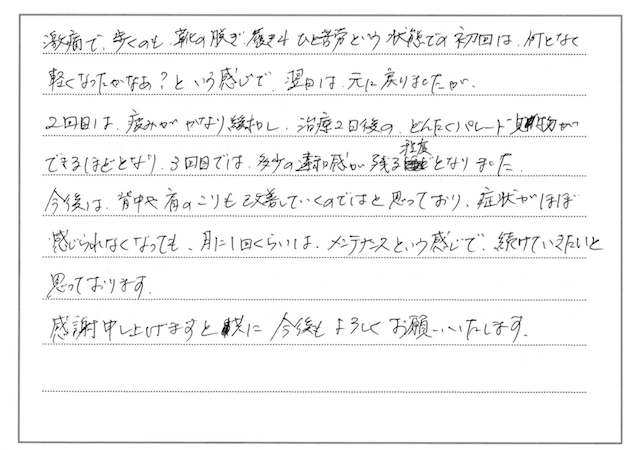 激痛で、歩くのも、靴の脱ぎ履きも ひと苦労という 状態での初回は、何となく
軽くなったかなあ?という感じで、翌日は、元に戻りましたが、
2回目は、痛みが かなり緩和し、治療2日後の、どんたくパレード見物が
できるほどとなり、3回目では、多少の違和感が 残る程度となりました。
今後は、背中や肩のこりも改善していくのではと思っており、症状がほぼ
感じられなくなっても、月に1回くらいは、メンテナンスという感じで、続けていきたいと
思っております。
感謝申し上げますと共に 今後も よろしく お願いいたします。